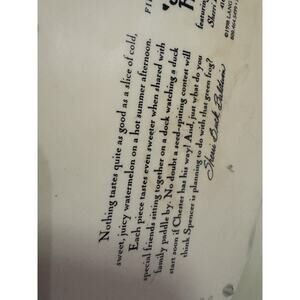 FI
featuring
Sheri
©1998 LANG
800.464.
Nothing tastes quite as good as a slice of cold,
sweet, juicy watermelon on a hot summer afternoon.
Each piece tastes even sweeter when shared with
special friends sitting together on a dock watching a duck
family paddle by. No doubt a seed-spitting contest will
start soon if Chester has his way! And, just what do you
think Spencer is planning to do with that green frog?
Sheri Buck Baldwin